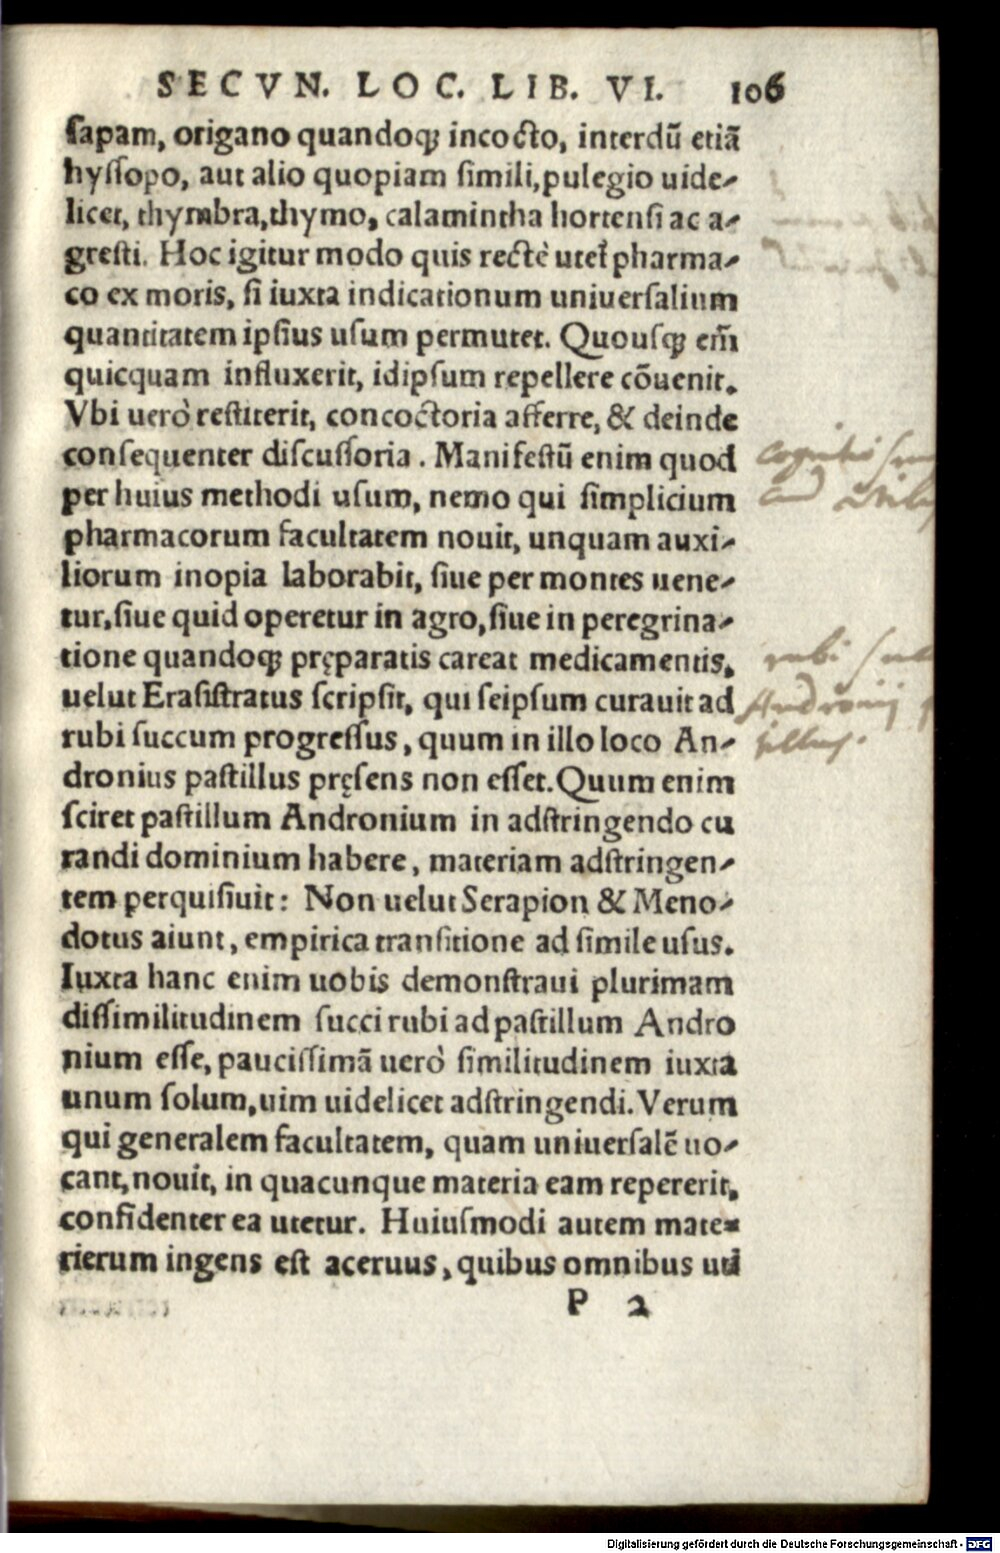 SECVN. LOC. LIB. VI. 106
sapam, origano quandoqꝫ incocto, interdũ etiã
hyssopo, aut alio quopiam simili, pulegio uide-
licet, thymbra, thymo, calamintha hortensi ac a-
gresti. Hoc igitur modo quis rectè utet pharma-
co ex moris, si iuxta indicationum uniuersalium
quantitatem ipsius usum permutet. Quousqꝫ em̃
quicquam influxerit, idipsum repellere cõuenit.
Vbi uerò restiterit, concoctoria afferre, & deinde
consequenter discussoria. Manifestũ enim quod
per huius methodi usum, nemo qui simplicium
pharmacorum facultatem nouit, unquam auxi-
liorum inopia laborabit, siue per montes uene-
tur, siue quid operetur in agro, siue in peregrina-
tione quandoqꝫ pręparatis careat medicamentis,
uelut Erasistratus scripsit, qui seipsum curauit ad
rubi succum progressus, quum in illo loco An-
dronius pastillus pręsens non esset. Quum enim
sciret pastillum Andronium in adstringendo cu
randi dominium habere, materiam adstringen-
tem perquisiuit: Non uelut Serapion & Meno-
dotus aiunt, empirica transitione ad simile usus.
Iuxta hanc enim uobis demonstraui plurimam
dissimilitudinem succi rubi ad pastillum Andro
nium esse, paucissimã uerò similitudinem iuxta
unum solum, uim uidelicet adstringendi. Verum
qui generalem facultatem, quam uniuersalẽ uo-
cant, nouit, in quacunque materia eam repererit,
confidenter ea utetur. Huiusmodi autem mate-
rierum ingens est aceruus, quibus omnibus uti
P 2
rubi
Andronij
Digitalisierung gefördert durch die Deutsche Forschungsgemeinschaft - DFG